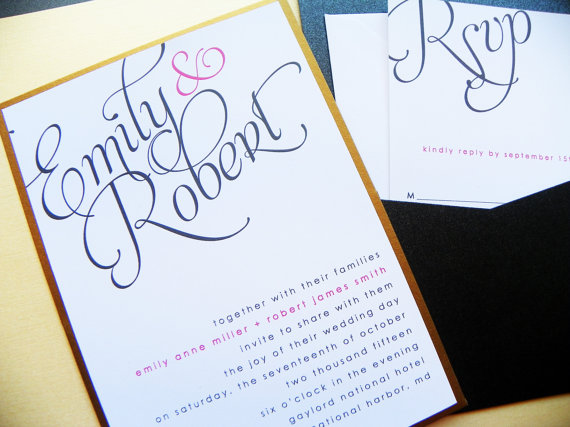 Emily &
Robert
together with their families
emily anne miller + robert james smith
invite to share with them
the joy of their wedding day
on saturday, the seventeenth of october
two thousand fifteen
six o'clock in the evening
gaylord national hotel
national harbor, md
Rsvp
kindly reply by september 15th
M